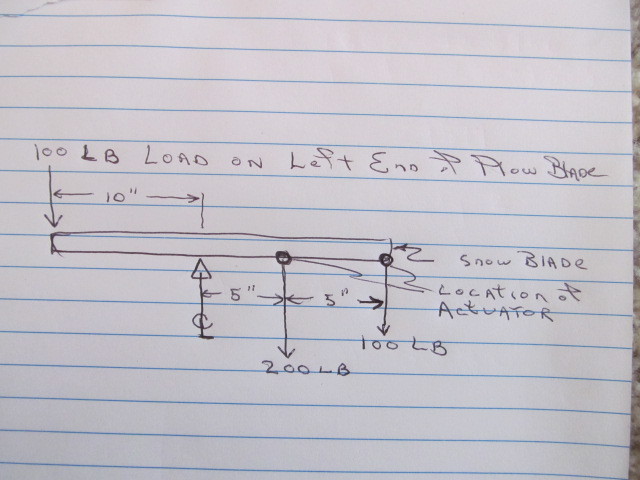 100 LB LOAD ON Left End of Plow Blade
10"
Snow BLADE
5" 5"
LOCATION of
ACTUATOR
100 LB
200 LB